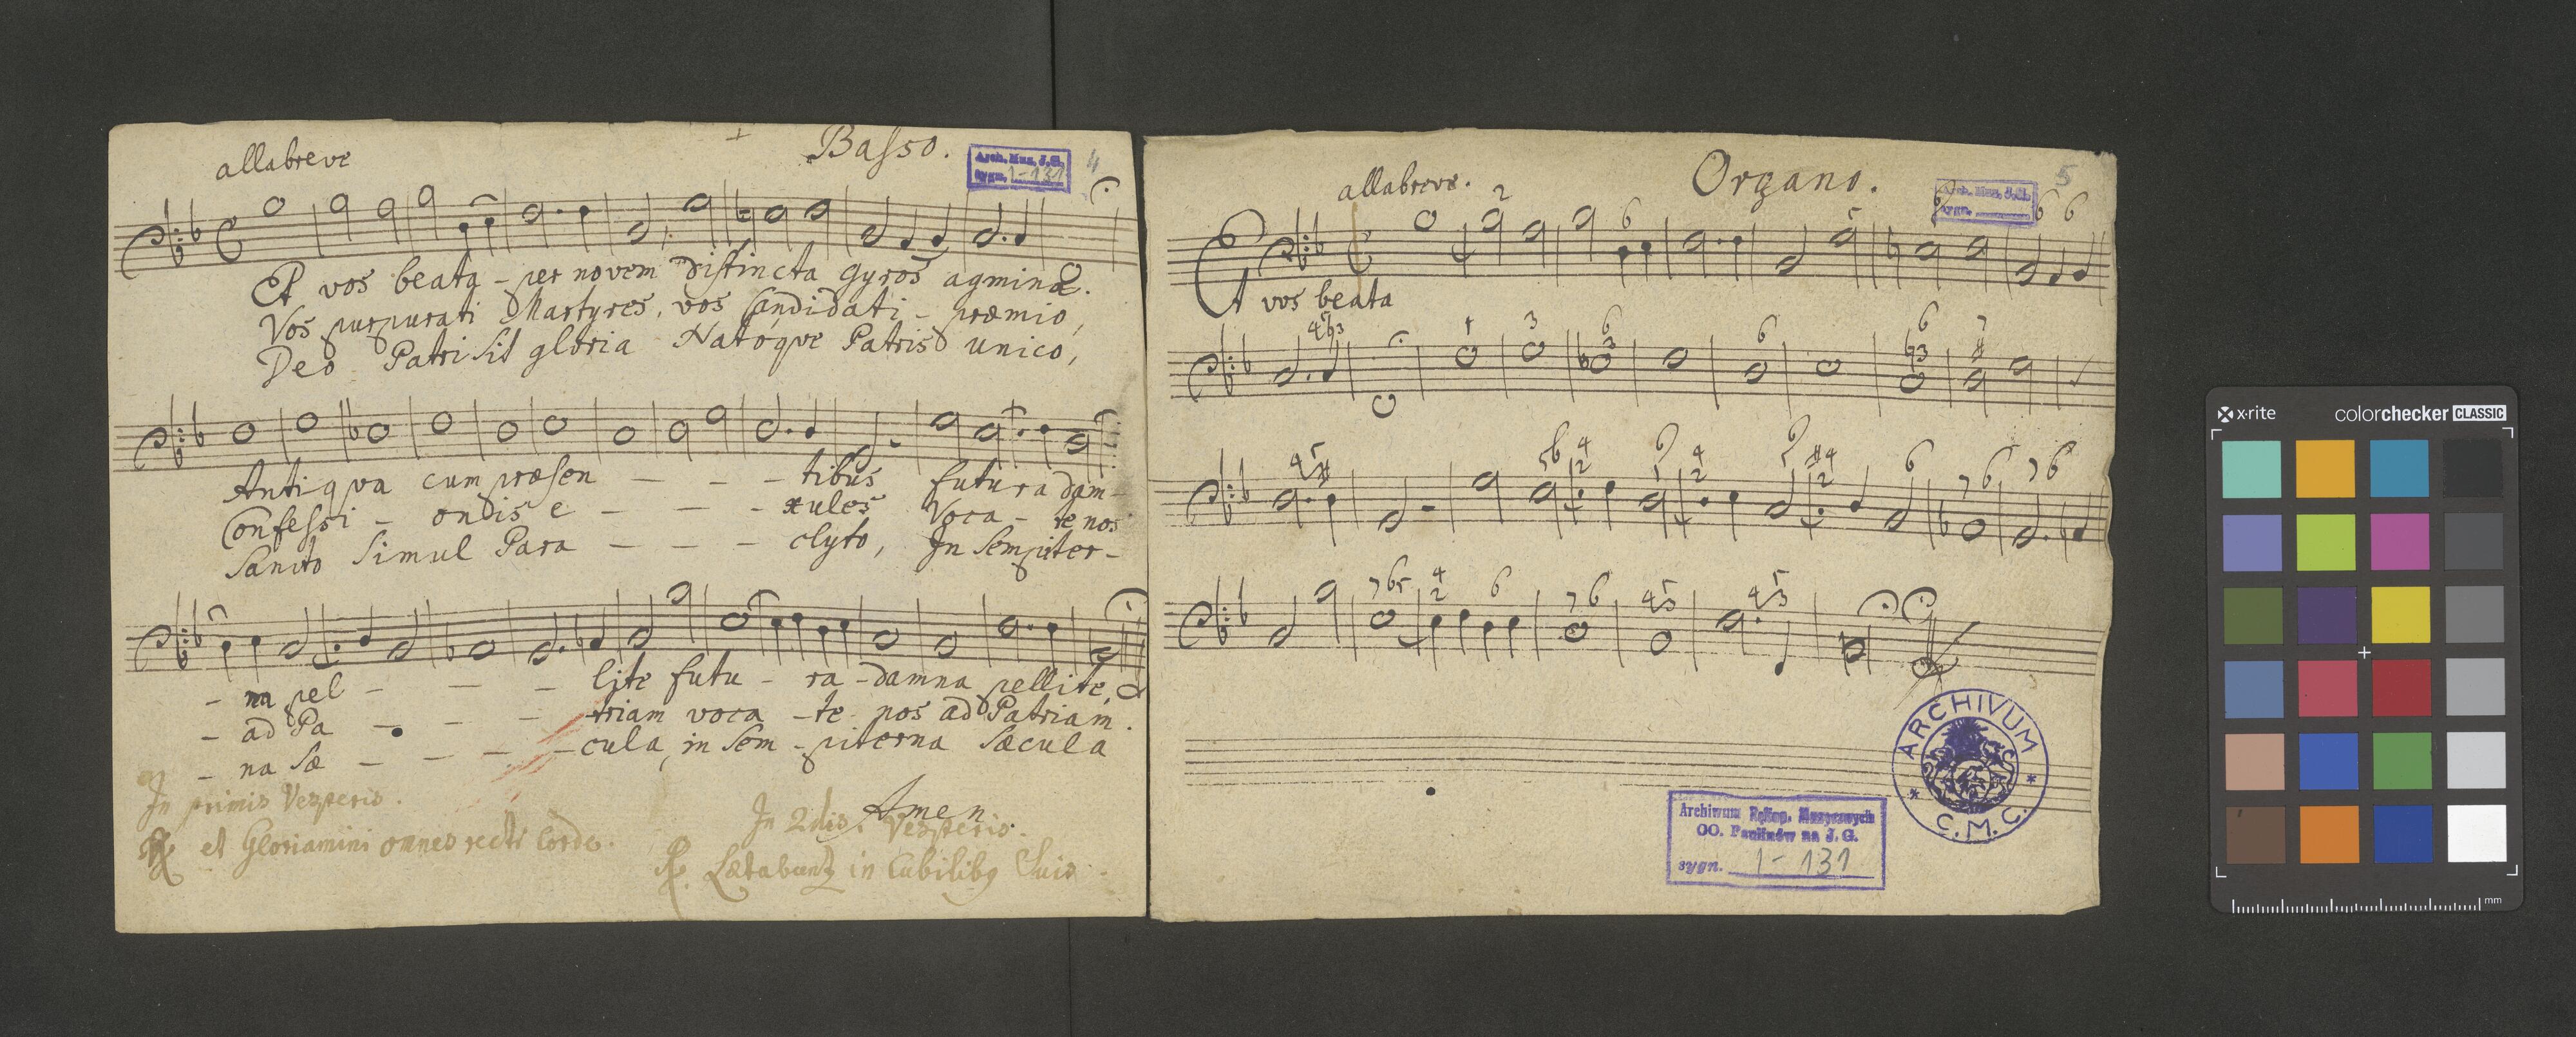 allabreve
Basso.
Arch. Muz. J.G.
sygn. I-131
4
Et vos beata - per novem distincta gyros agmina.
Vos purpurati Martyres, vos Candidati - præmio,
Deo Patri sit gloria Natóqve Patris unico,
Antiqva cum præsen - - - tibus futura dam-
Confessi - ondis e - - - xules Voca - te nos
Sancto Simul Para - - - clyto, In Sempiter-
- na pel - - - lite futu - ra - damna pellite,
- ad Pa - - - triam voca - te nos ad Patriam.
- na sæ - - - cula, in Sem - piterna Sæcula
Amen.
In primis Vesperis.
℟ et Gloriamini omnes recti Corde.
In 2dis Vesperis.
℟. Lætabuntur in Cubilibus Suis.
allabreve.
Organo.
5
Arch. Muz. J.G.
sygn.
2 6 5 6 6
Et vos beata
6 6 6
4 2 6 4 2 4 2 6 7 6 7 6
7 6 5 4 2 6 7 6 4 3 4 3
ARCHIVUM
C.M.C.
Archiwum Rękop. Muzycznych
OO. Paulinów na J. G.
sygn. I-131
x·rite
colorchecker CLASSIC
mm